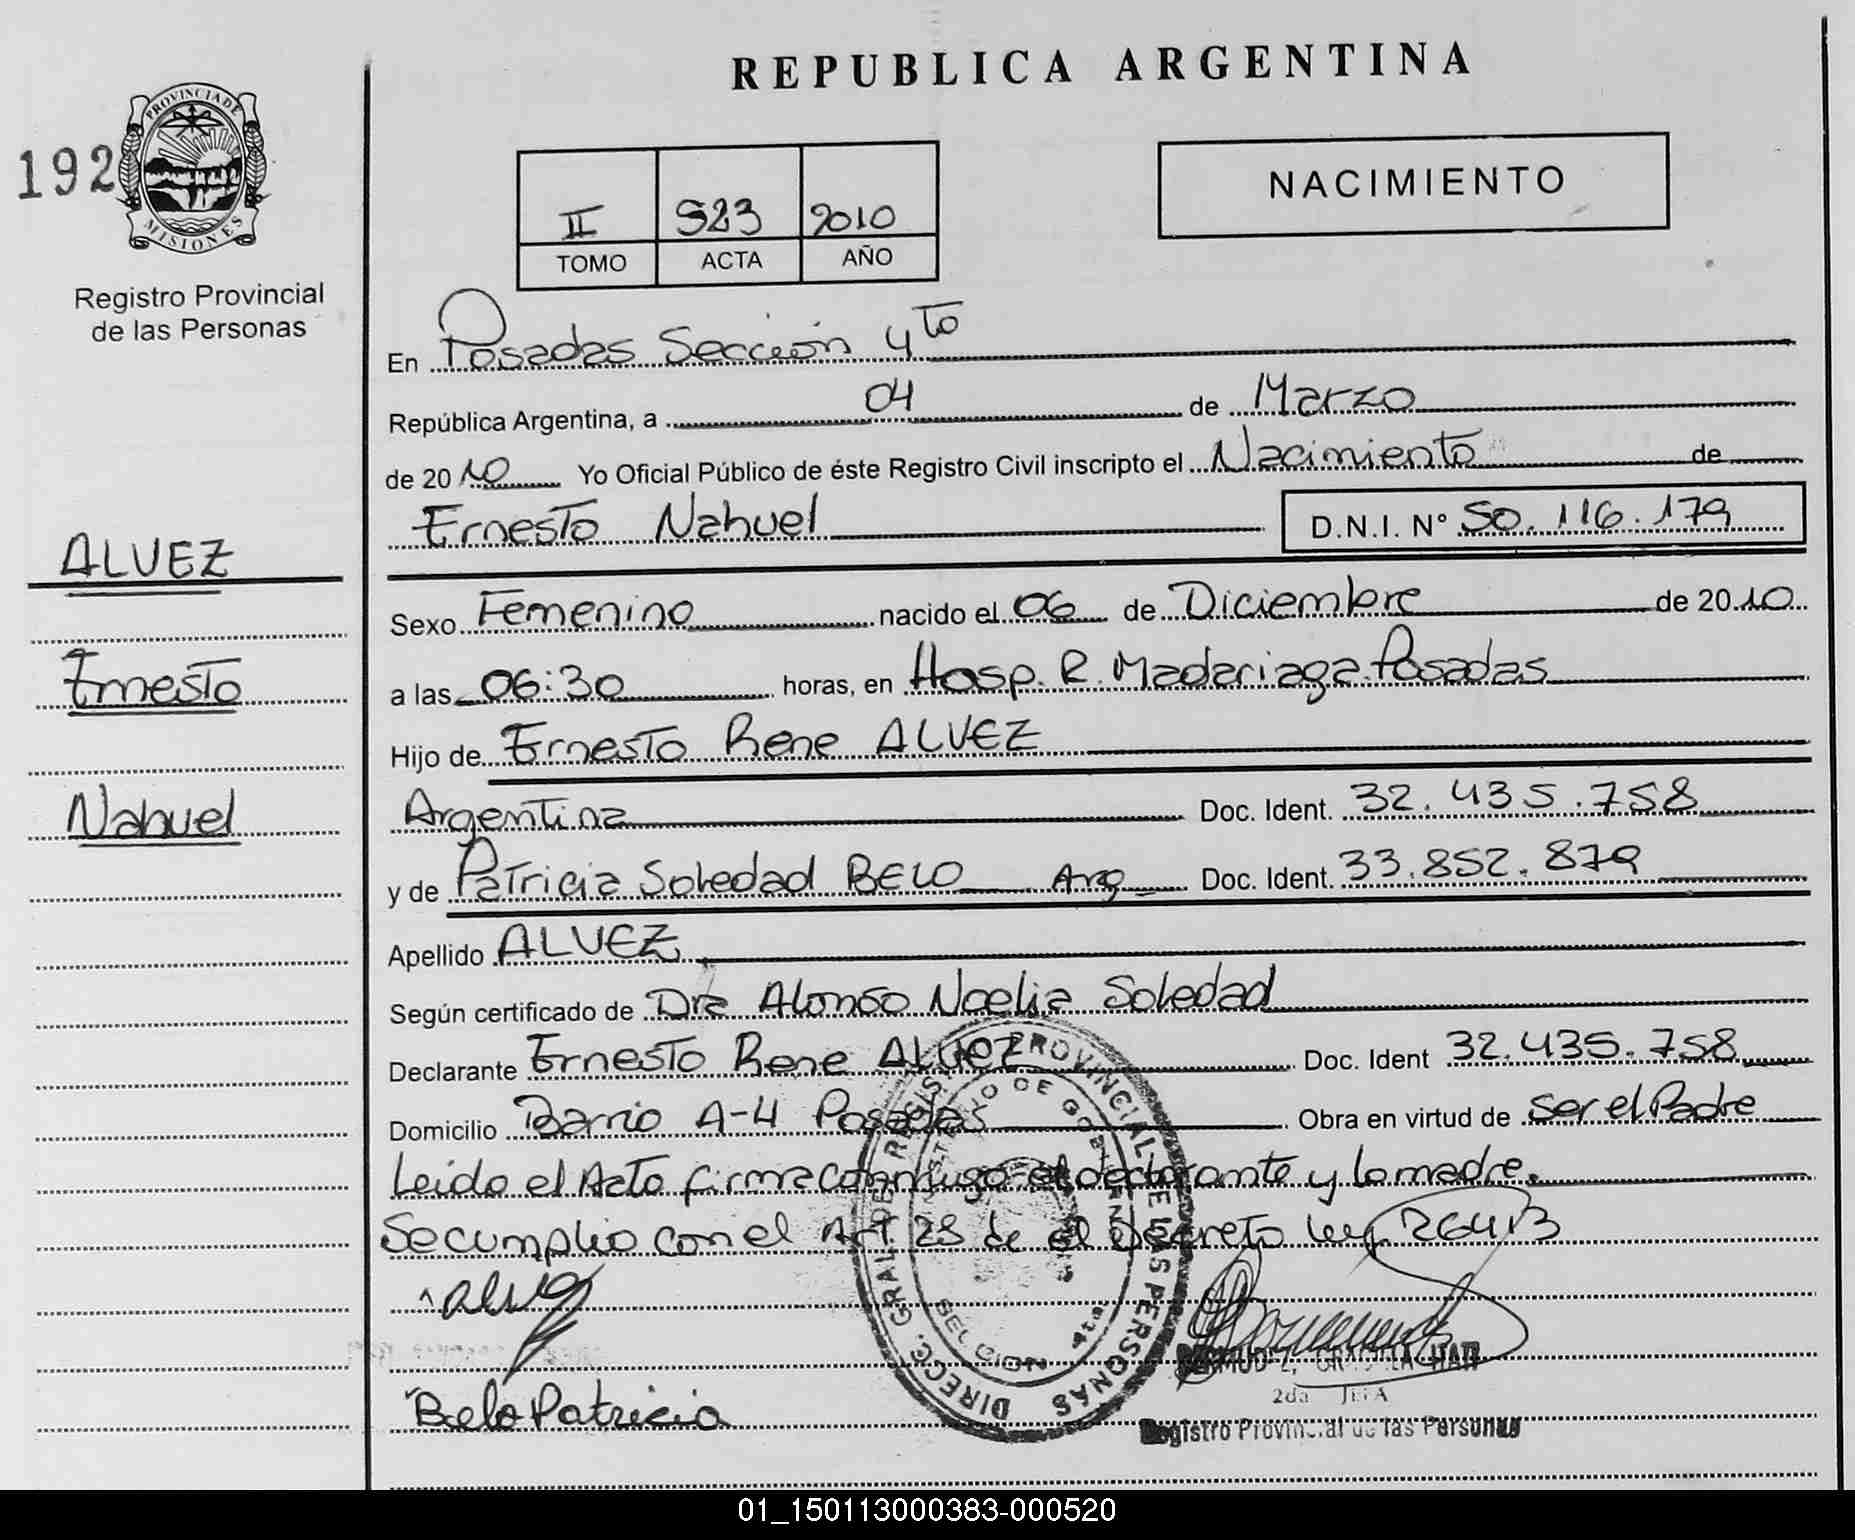 REPUBLICA ARGENTINA
192
PROVINCIA DE MISIONES
NACIMIENTO
II 523 2010
TOMO ACTA AÑO
Registro Provincial
de las Personas
En Posadas Sección 4to
República Argentina, a 04 de Marzo
de 2010 Yo Oficial Público de éste Registro Civil inscripto el Nacimiento de
Ernesto Nahuel D.N.I. N° 50.116.179
ALVEZ
Ernesto
Nahuel
Sexo Femenino nacido el 06 de Diciembre de 2010
a las 06:30 horas, en Hosp. R. Madariaga Posadas
Hijo de Ernesto Rene ALVEZ
Argentina Doc. Ident. 32.435.758
y de Patricia Soledad BELO Arg Doc. Ident. 33.852.879
Apellido ALVEZ
Según certificado de Dra Alonso Noelia Soledad
Declarante Ernesto Rene ALVEZ Doc. Ident 32.435.758
Domicilio Barrio A-4 Posadas Obra en virtud de ser el Padre
Leido el Acto firma conmigo el declarante y la madre.
Se cumplio con el Art 25 de el Decreto ley 26413
DIRECC. GRAL DE REGISTRO PROVINCIAL DE LAS PERSONAS
MINISTERIO DE GOBIERNO
Belo Patricia
GRACIELA ITATI
2da JEFA
Registro Provincial de las Personas
01_150113000383-000520